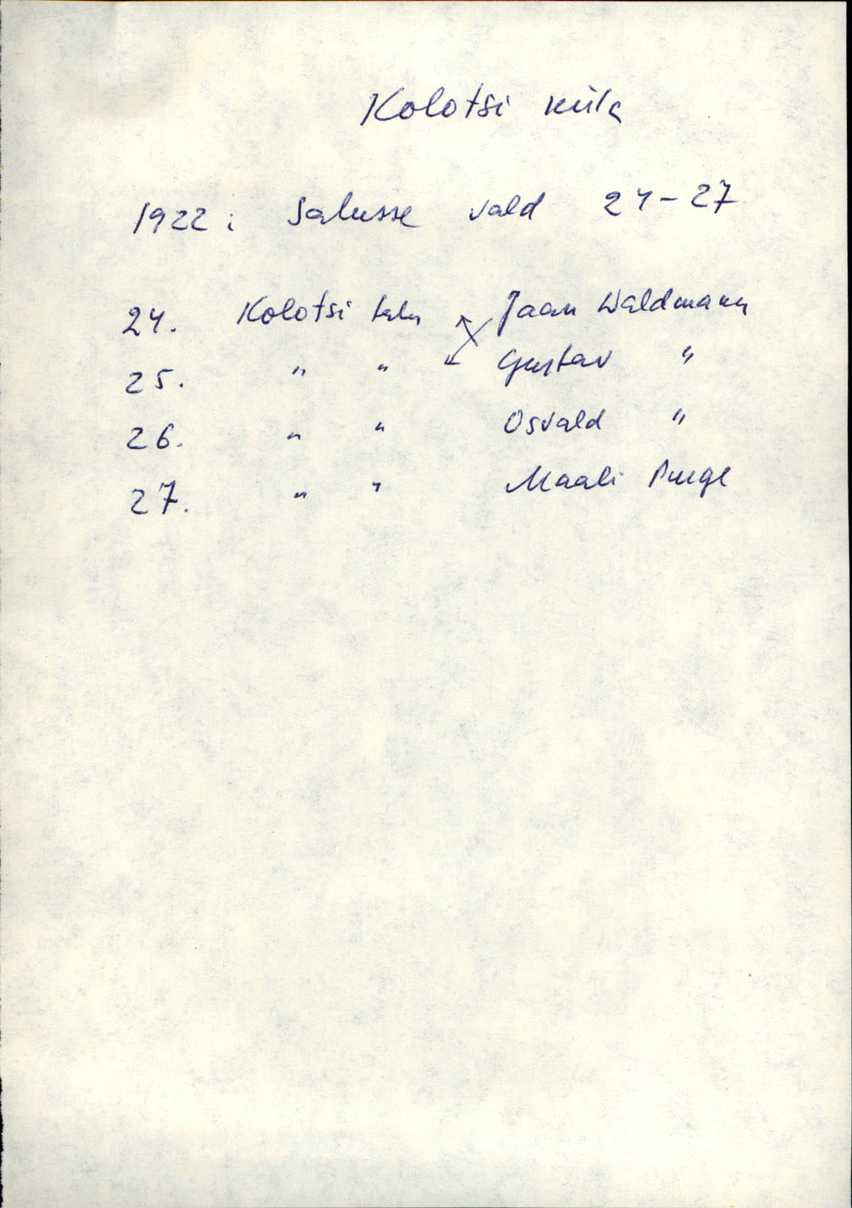 Kolotsi küla
1922: Salusse vald 24-27
24. Kolotsi talu Jaan Waldmann
25. " " Gustav "
26. " " Osvald "
27. " " Maali